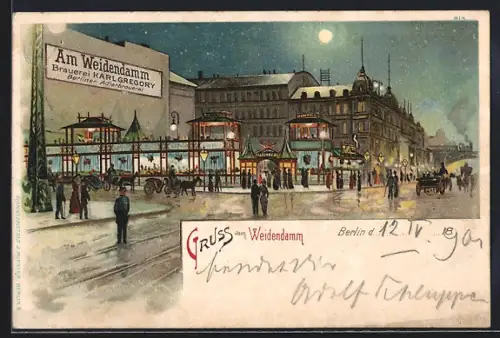 Am Weidendamm
Brauerei KARL GREGORY
Berliner Adlerbrauerei
GRUSS vom Weidendamm
Berlin d. 12 IV 18 901
sendet Dir
Adolf